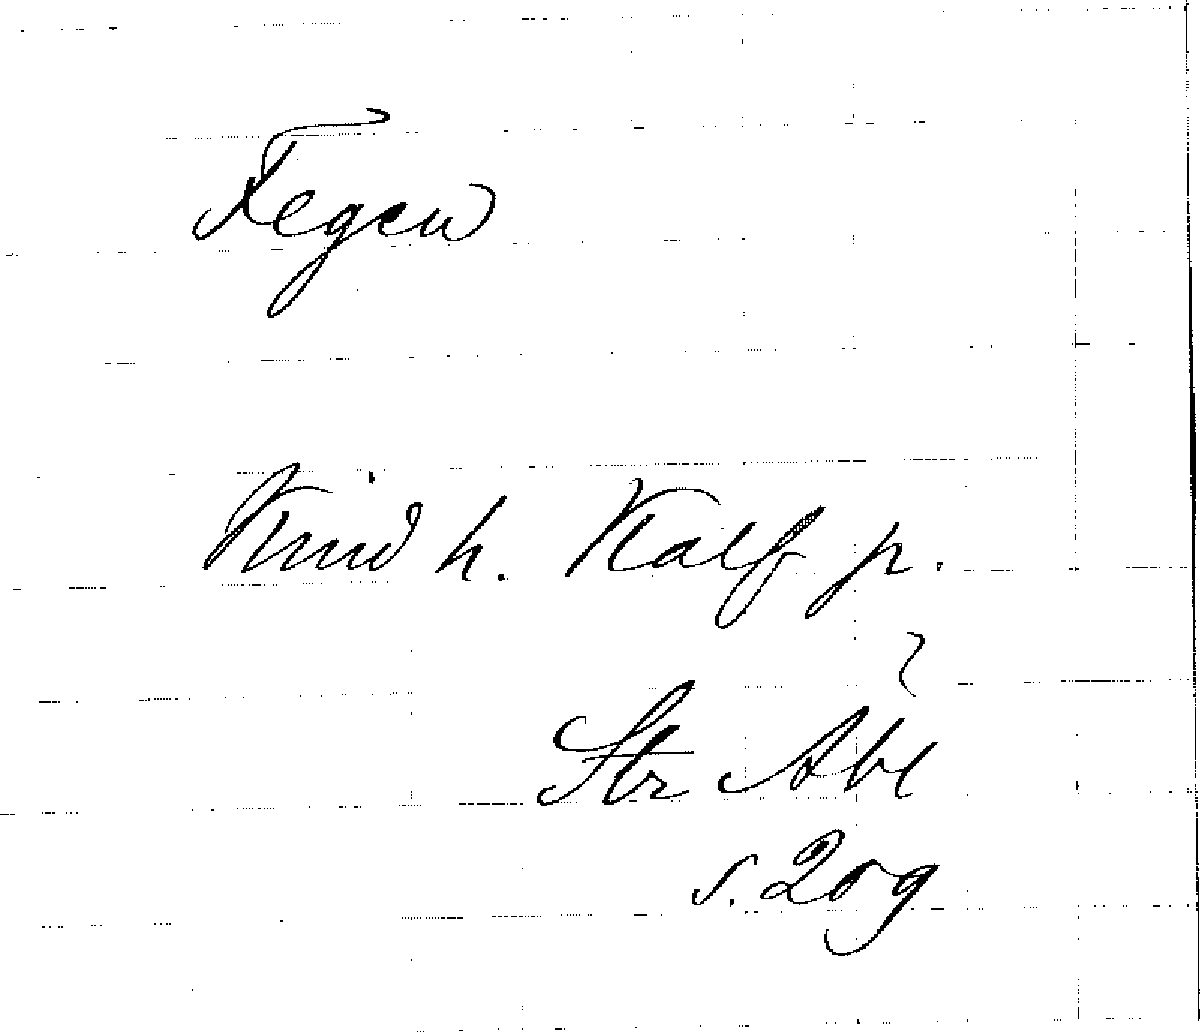 Fegen
Kind h. Kalf p.
Str Abl
s. 209